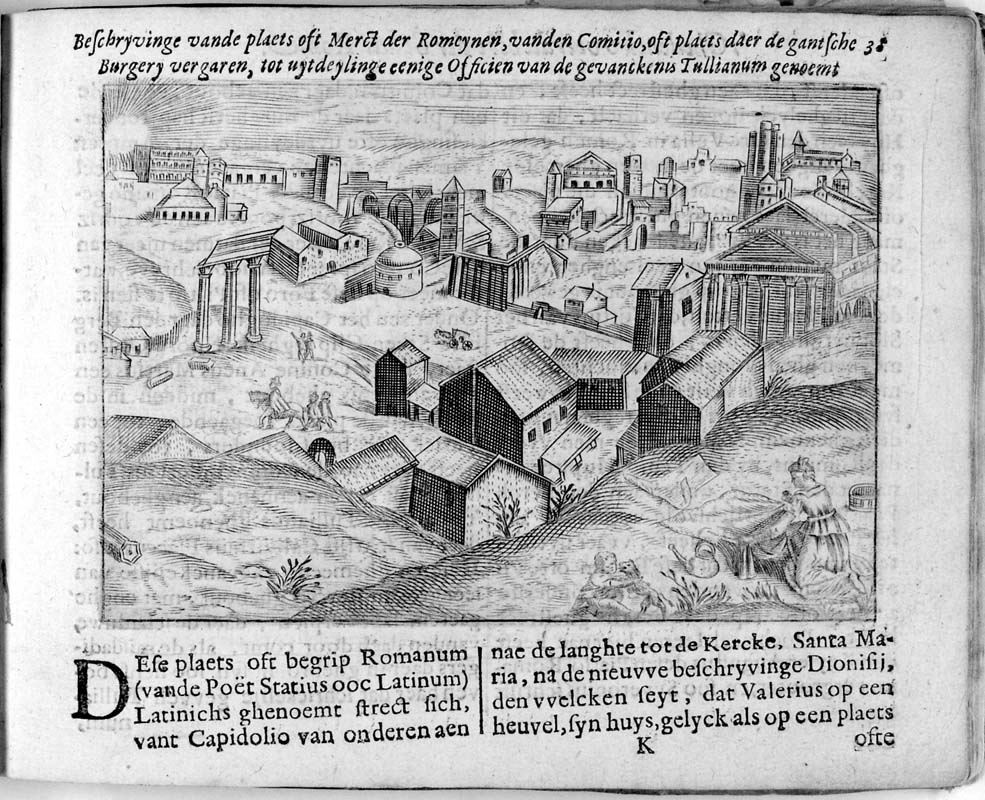 Beſchryvinge vande plaets oft Merct der Romeynen, vanden Comitio, oft plaets daer de gantſche
Burgery vergaren, tot uytdeylinge eenige Officien van de gevanckenis Tullianum genoemt
DEſe plaets oft begrip Romanum
(vande Poët Statius ooc Latinum)
Latinichs ghenoemt ſtrect ſich,
vant Capidolio van onderen aen
nae de langhte tot de Kercke, Santa Ma-
ria, na de nieuvve beſchryvinge Dioniſij,
den vvelcken ſeyt, dat Valerius op een
heuvel, ſyn huys, gelyck als op een plaets
K
ofte